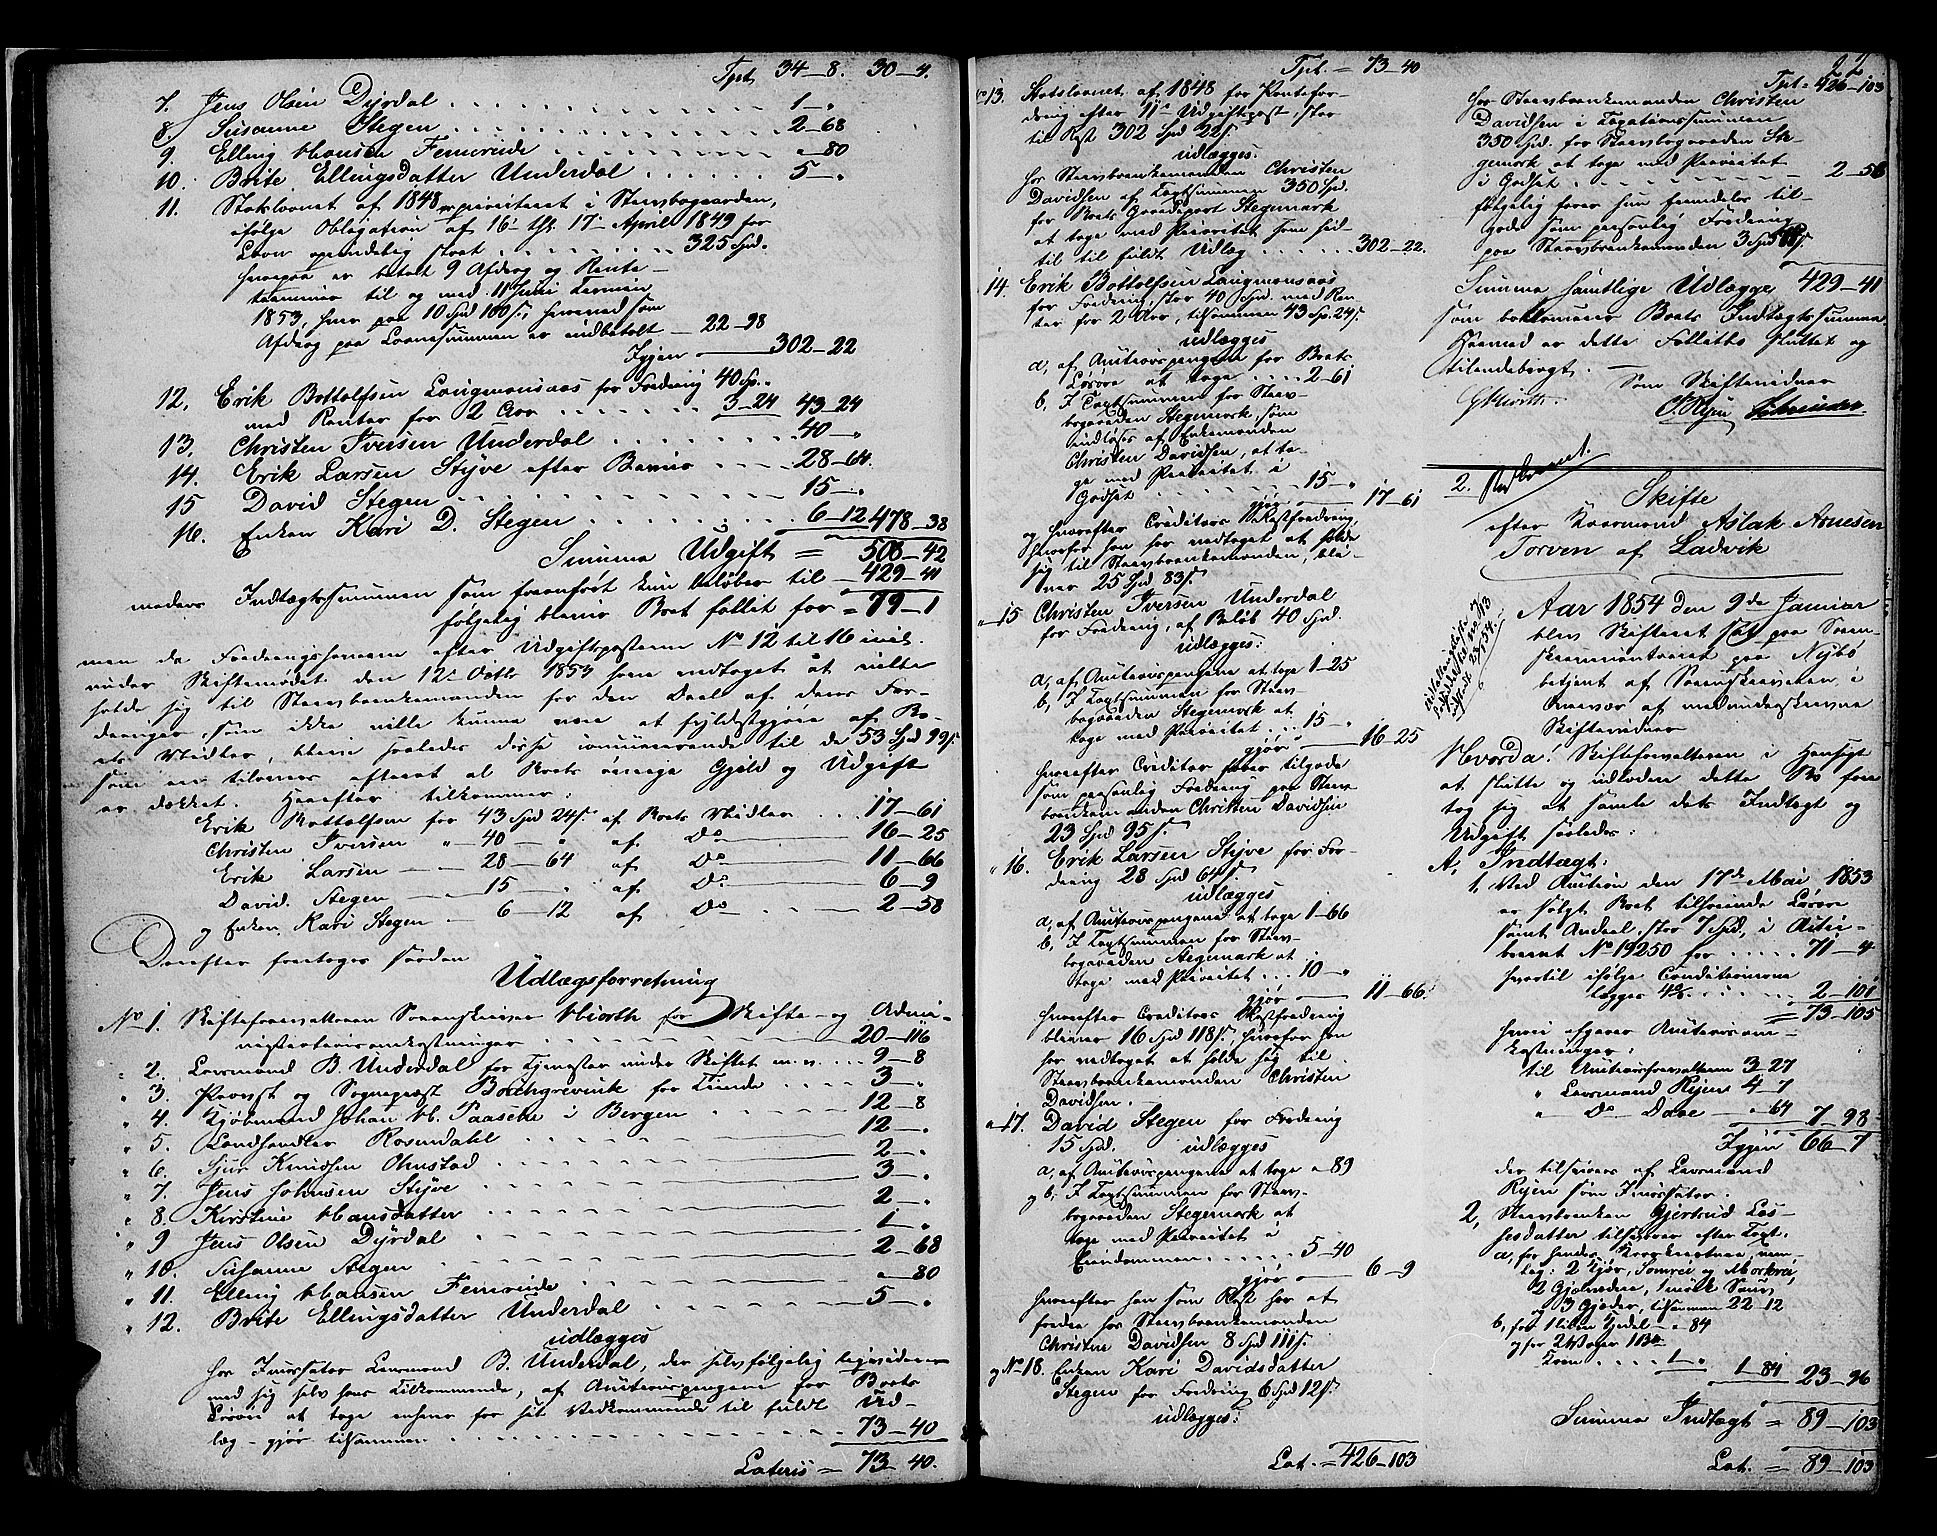 Tpt. 34_8. 30_4.
7. Jens Olsen Dyrdal . . . . 1_„
8. Susanne Stegen . . . . 2_68
9. Elling Hansen Femreide . . . . „_80
10. Brite Ellingsdatter Underdal . . . . . 5_„
11. Statslaanet af 1848 prioriteret i Stervbogaarden,
ifølge Obligation af 16. th. 17. April 1849 for
Laan oprindelig stort . . . . 325 Spd.
hvorpaa er betalt 9 Afdrag og Rente-
terminer til og med 11 Juni Termin
1853, hver paa 10 Spd 100 s; hvormed som
Afdrag paa Laanesummen er indbetalt _ 22_98
Igjen _ 302_22
12. Erik Bottolfsen Langmansaas for Fordring 40 Sp. „
med Renter for 2 Aar . . . . 3_24 43_24
13. Christen Iversen Underdal . . . . 40_„
14. Erik Larsen Styve efter Beviis . . . . 28_64.
15 David Stegen . . . . 15_„
16. Enken Kari D. Stegen . . . . 6_12 478_38
Summa Udgift = 508_42
medens Indtægtssummen som foranført kun beløber til _ 429_41
følgelig bliver Boet fallit for = 79_1
men da Fordringshaverne efter Udgiftsposterne No 12 til 16 incl.
under Skiftemødet den 12te Octbr 1853 have vedtaget at ville
holde sig til Stervboenkemanden for den Deel af deres For-
dringer, som ikke ville kunne være at fyldestgjøre af Bo-
ets Midler, blive saaledes disse concurrerende til de 53 Spd 99 s.
som er tilovers efterat al Boets øvrige Gjeld og Udgift
er dækket. Herefter tilkommer:
Erik Bottolfsen for 43 Spd 24 s. af Boets Midler . . . 17_61
Christen Iversen „_40_„ af Do _ 16_25
Erik Larsen _ 28_64 af Do _ 11_66
David Stegen _ 15_„ af Do _ 6_9
og Enken Kari Stegen _ 6_12 af Do _ 2_58
Derefter foretoges saadan
Udlægsforretning
No 1. Skifteforvalteren Sorenskriver Hiorth for Skifte- og Admi-
nistrationsomkostninger . . . . 20_116
„ 2. Lensmand B. Underdal for Tjenester under Skiftet m. v. . . 9_8
„ 3. Provst og Sognepræst Borchgrevink for Tiende . . . . 3_„
„ 4. Kjøbmand Johan H. Paasche i Bergen . . . . 12_8
„ 5. Landhandler Rosendahl . . . . 12_„
„ 6. Sjur Knudsen Ohnstad . . . . 2_„
„ 7. Jens Johnsen Styve . . . . 3_„
„ 8. Kirstine Hansdatter . . . . 2_„
„ 9 Jens Olsen Dyrdal . . . . 1_„
„ 10. Susanne Stegen . . . . 2_68
„ 11. Elling Hansen Femreide . . . . „_80
„ 12. Brite Ellingsdatter Underdal . . . . 5_„
udlægges
hos Incassator Lensmand B. Underdal, der selvfølgelig liqviderer
med sig selv hans Tilkommende, af Auctionspengene for Boets
Løsøre at tage enhver for sit Vedkommende til fuldt Ud-
læg _ gjør tilsammen . . . . 73_40
Lateris = 73_40.
Tpt. = 73_40
No 13. Statslaanet af 1848 for Pantefor-
dring efter 11te Udgiftspost, stor
til Rest 302 Spd 22 s.
udlægges
hos Stervboenkemanden Christen
Davidsen af Taxtsummen 350 Spd.
for Boets Gaardepart Stegemark
at tage med Prioritet som hid-
til til fuldt Udlæg . . . . 302_22.
„ 14. Erik Bottolfsen Langmansaas
for Fordring, stor 40 Spd. med Ren-
ter for 2 Aar, tilsammen 43 Sp. 24 s.
udlægges
a, af Auctionspengene for Boets
Løsøre at tage . . . . 2_61
b, I Taxtsummen for Sterv-
bogaarden Stegemark, som
indløses af Enkemanden
Christen Davidsen, at ta-
ge med Prioritet i
Godset . . . . 15_„
gjør _ 17_61
og hvorefter Creditors Restfordring,
hvorfor han har vedtaget at holde
sig til Stervboenkemanden, bli-
ver 25 Spd 83 s.
„ 15 Christen Iversen Underdal
for Fordring, af Beløb 40 Spd.
udlægges:
a, af Auctionspengene at tage 1_25
b, I Taxtsummen for Sterv-
bogaarden Stegemark at
tage med Prioritet . . . 15_„
gjør _ 16_25
hvorefter Creditor faaer tilgode
som personlig Fordring paa Sterv-
boenkemanden Christen Davidsen
23 Spd 95 s.
„ 16. Erik Larsen Styve for For-
dring 28 Spd 64 s.
udlægges
a, af Auctionspengene at tage 1_66
b, I Taxtsummen for Sterv-
bogaarden Stegemark at
tage med Prioritet . . . 10_„
gjør _ 11_66.
hvorefter Creditors Restfordring
bliver 16 Spd 118 s., hvorfor han
har vedtaget at holde sig til
Stervboenkemanden Christen
Davidsen.
„ 17. David Stegen for Fordring
15 Spd. udlægges
a, af Auctionspengene at tage „_89
og b, I Taxtsummen for Sterv-
bogaarden Stegemark at
tage med Prioritet i
Eiendommen . . . . 5_40
gjør _ 6_9
hvorefter han som Rest har at
fordre hos Stervboenkemanden
Christen Davidsen 8 Spd 111 s.
og No 18. Enken Kari Davidsdatter
Stegen for Fordring 6 Spd 12 s.
udlægges:
Lat. = 426_103
Tpt = 426_103
hos Stervboenkemanden Christen
Davidsen i Taxationssummen
350 Spd. for Stervbogaarden Ste-
gemark at tage med Prioritet
i Godset . . . . 2_58
følgelig faaer hun fremdeles til-
gode som personlig Fordring
paa Stervboenkemanden 3 Spd 74 s.
Summa samtlige Udlægge 429_41
som bekommer Boets Indtægtssumma
Hermed er dette Fallitbo sluttet og
tilendebragt.
Som Skiftevidner
GHiorth.
2.
Skifte
efter Kaarmand Aslak Arnesen
Torven af Ladvik
Aar 1854 den 9de Januar
blev Skifteret sat paa Soren-
skrivercontoiret paa Nybø
betjent af Sorenskriveren, i
Nærvær af medunderskrevne
Skiftevidner
Hvorda! Skifteforvalteren i Hensigt
at slutte og udlodde dette Bo fore
tog sig at samle dets Indtægt og
Udgift saaledes:
A, Indtægt.
1. Ved Auction den 17de Mai 1853
er solgt Boet tilhørende Løsøre
samt Andeel, stor 7 Spd, i Auti-
breret No 19250 for . . . . 71_4
hvortil ifølge Conditionerne
lægges 4% . . . . 2_101
= 73_105
hvori afgaar Auctionsom-
kostninger:
til Auctionsforvalteren 3_27
„ Lensmand Rysjen 4_7
„ Do Dave _ „_64 7_98
Igjen 66_7
der tilsvares af Lensmand
Rysjen som Incassator.
2, Stervboenken Gjertrud Las-
sesdatter tilsvarer efter Taxt.
a, for hendes Kreaturer nem-
lig: 2 Kjør, Sommrei og Morkrei,
2 Gjeldnder, 1 mørk Sau,
og 3 Gjeder, tilsammen 22_12
b, for 1 liden Kjedel _ „_84
1_„
1_84 23_96
Summa Indtægt = 89_103
Lat. = 89_103